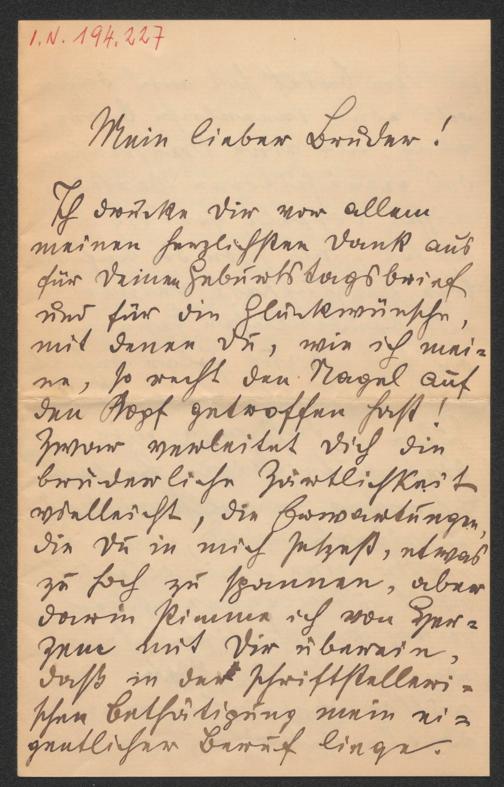 I.N. 194.227
Mein lieber Bruder!
Ich drücke Dir vor allem
meinen herzlichsten Dank aus
für Deinen Geburtstagsbrief
und für die Glückwünsche,
mit denen Du, wie ich mei=
ne, so recht den Nagel auf
den Kopf getroffen hast!
Zwar verleitet Dich die
brüderliche Zärtlichkeit
vielleicht, die Erwartungen,
die Du in mich setzest, etwas
zu hoch zu spannen, aber
darin stimme ich von Her=
zen mit Dir überein,
daß in der schriftstelleri=
schen Bethätigung mein ei=
gentlicher Beruf liege.